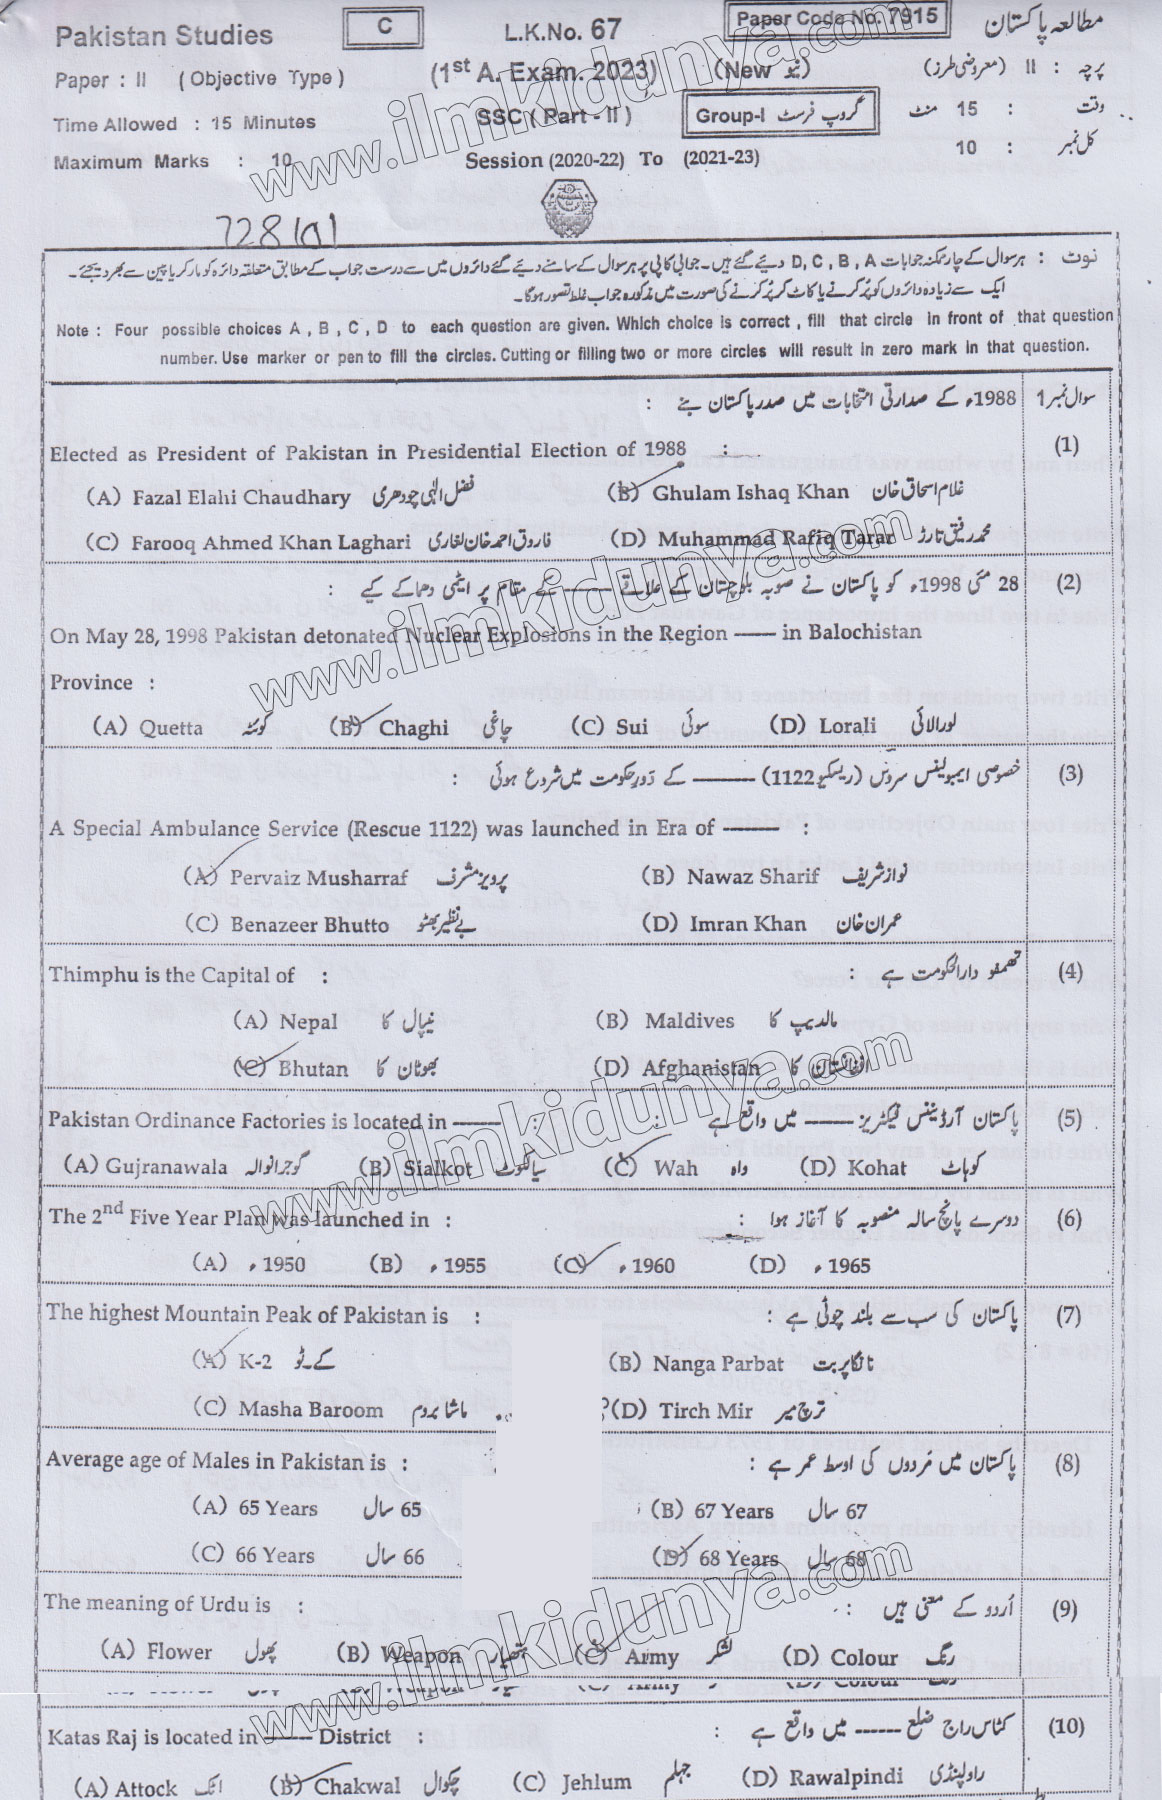 Pakistan Studies
C
L.K.No. 67
Paper Code No. 7915
مطالعہ پاکستان
Paper : II ( Objective Type )
(1st A. Exam. 2023)
(New نیو)
پرچہ : II (معروضی طرز)
Time Allowed : 15 Minutes
SSC ( Part - II )
Group-I گروپ فرسٹ
وقت : 15 منٹ
Maximum Marks : 10
Session (2020-22) To (2021-23)
کل نمبر : 10
نوٹ : ہر سوال کے چار ممکنہ جوابات D , C , B , A دیئے گئے ہیں۔ جوابی کاپی پر ہر سوال کے سامنے دیئے گئے دائروں میں سے درست جواب کے مطابق متعلقہ دائرہ کو مارکر یا پین سے بھر دیجئے۔
ایک سے زیادہ دائروں کو پُر کرنے یا کاٹ کر پُر کرنے کی صورت میں مذکورہ جواب غلط تصور ہو گا۔
Note : Four possible choices A , B , C , D to each question are given. Which choice is correct , fill that circle in front of that question
number. Use marker or pen to fill the circles. Cutting or filling two or more circles will result in zero mark in that question.
سوال نمبر 1
1988ء کے صدارتی انتخابات میں صدر پاکستان بنے :
(1)
Elected as President of Pakistan in Presidential Election of 1988 :
(A) Fazal Elahi Chaudhary فضل الٰہی چودھری (B) Ghulam Ishaq Khan غلام اسحاق خان
(C) Farooq Ahmed Khan Laghari فاروق احمد خان لغاری (D) Muhammad Rafiq Tarar محمد رفیق تارڑ
(2) 28 مئی 1998ء کو پاکستان نے صوبہ بلوچستان کے علاقے ------ کے مقام پر ایٹمی دھماکے کیے :
On May 28, 1998 Pakistan detonated Nuclear Explosions in the Region ------ in Balochistan
Province :
(A) Quetta کوئٹہ (B) Chaghi چاغی (C) Sui سوئی (D) Lorali لورالائی
(3) خصوصی ایمبولینس سروس (ریسکیو 1122) -------- کے دَورِ حکومت میں شروع ہوئی :
A Special Ambulance Service (Rescue 1122) was launched in Era of -------- :
(A) Pervaiz Musharraf پرویز مشرف (B) Nawaz Sharif نواز شریف
(C) Benazeer Bhutto بے نظیر بھٹو (D) Imran Khan عمران خان
Thimphu is the Capital of : تھمفو دارالحکومت ہے : (4)
(A) Nepal نیپال کا (B) Maldives مالدیپ کا
(C) Bhutan بھوٹان کا (D) Afghanistan افغانستان کا
Pakistan Ordinance Factories is located in ------- : پاکستان آرڈیننس فیکٹریز ------ میں واقع ہے : (5)
(A) Gujranawala گوجرانوالہ (B) Sialkot سیالکوٹ (C) Wah واہ (D) Kohat کوہاٹ
The 2nd Five Year Plan was launched in : دوسرے پانچ سالہ منصوبہ کا آغاز ہوا : (6)
(A) 1950ء (B) 1955ء (C) 1960ء (D) 1965ء
The highest Mountain Peak of Pakistan is : پاکستان کی سب سے بلند چوٹی ہے : (7)
(A) K-2 کے۔ٹو (B) Nanga Parbat نانگا پربت
(C) Masha Baroom ماشا بروم (D) Tirch Mir ترچ میر
Average age of Males in Pakistan is : پاکستان میں مَردوں کی اوسط عمر ہے : (8)
(A) 65 Years 65 سال (B) 67 Years 67 سال
(C) 66 Years 66 سال (D) 68 Years 68 سال
The meaning of Urdu is : اُردو کے معنی ہیں : (9)
(A) Flower پھول (B) Weapon ہتھیار (C) Army لشکر (D) Colour رنگ
Katas Raj is located in ------ District : کٹاس راج ضلع ------ میں واقع ہے : (10)
(A) Attock اٹک (B) Chakwal چکوال (C) Jehlum جہلم (D) Rawalpindi راولپنڈی
www.ilmkidunya.com
www.ilmkidunya.com
www.ilmkidunya.com
www.ilmkidunya.com